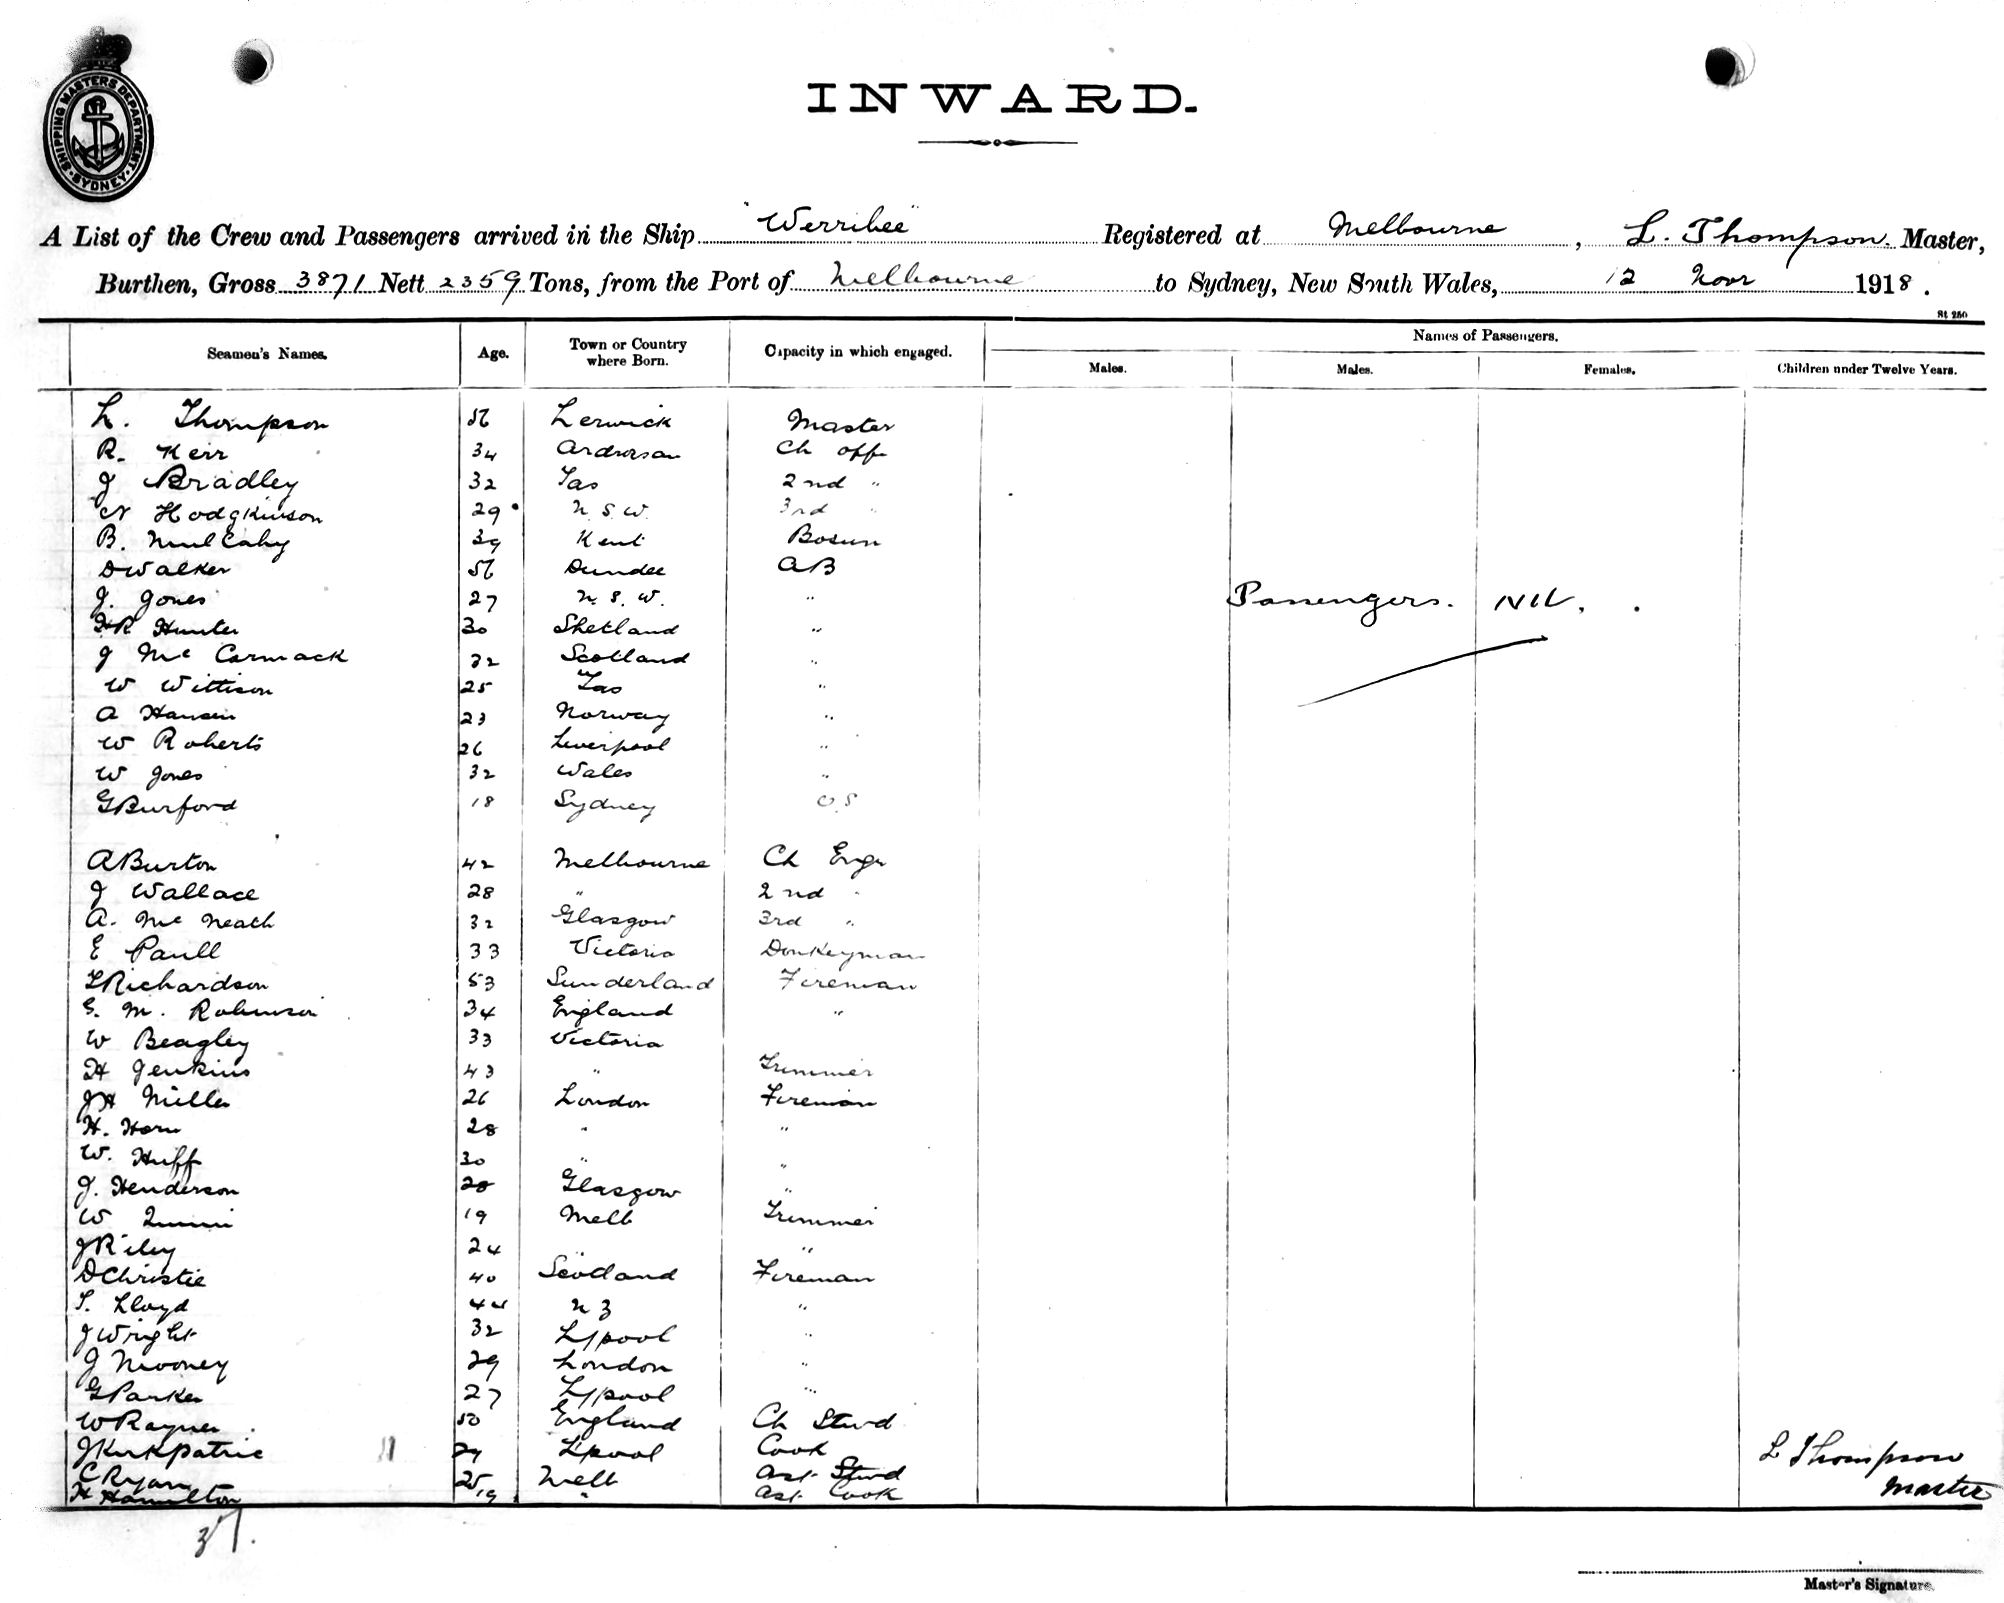 SHIPPING MASTERS DEPARTMENT. SYDNEY.
INWARD.
A List of the Crew and Passengers arrived in the Ship "Werribee" Registered at Melbourne, L. Thompson. Master,
Burthen, Gross 3871 Nett 2359 Tons, from the Port of Melbourne to Sydney, New South Wales, 12 Novr 1918.
St 250
Names of Passengers.
Seamen's Names. Age. Town or Country where Born. Capacity in which engaged. Males. Males. Females. Children under Twelve Years.
L. Thompson 56 Lerwick Master
R. Kerr 34 Ardrossan Ch off
J Bradley 32 Tas 2nd "
Hodgkinson 29 N.S.W. 3rd "
B. Mulcahy 39 Kent Bosun
D Walker 56 Dundee AB
J. Jones 27 N.S.W. "
Passengers. Nil.
HR Hunter 30 Shetland "
J McCormack 32 Scotland "
W Wittison 25 Tas "
A Hansen 23 Norway "
W Roberts 26 Liverpool "
W Jones 32 Wales "
G Burford 18 Sydney O.S
A Burton 42 Melbourne Ch Engr
J Wallace 28 " 2nd "
A. McNeath 32 Glasgow 3rd "
E Paull 33 Victoria Donkeyman
L Richardson 53 Sunderland Fireman
G. M. Robinson 34 England "
W Beagley 33 Victoria
H Jenkins 43 " Trimmer
JH Miller 26 London Fireman
H. Horn 28 " "
W. Huff 30 " "
J. Henderson 28 Glasgow "
W Quinn 19 Melb Trimmer
J Riley 24 " "
D Christie 40 Scotland Fireman
S. Lloyd 44 NZ "
J Wright 32 L/pool "
J Mooney 29 London "
G Parker 27 L/pool "
W Rayner 50 England Ch Stwd
J Kirkpatric 29 L'pool Cook
C Ryan 25 Melb Ast Stwd
H Hamilton 19 " Ast Cook
L Thompson
Master
37.
Master's Signature.